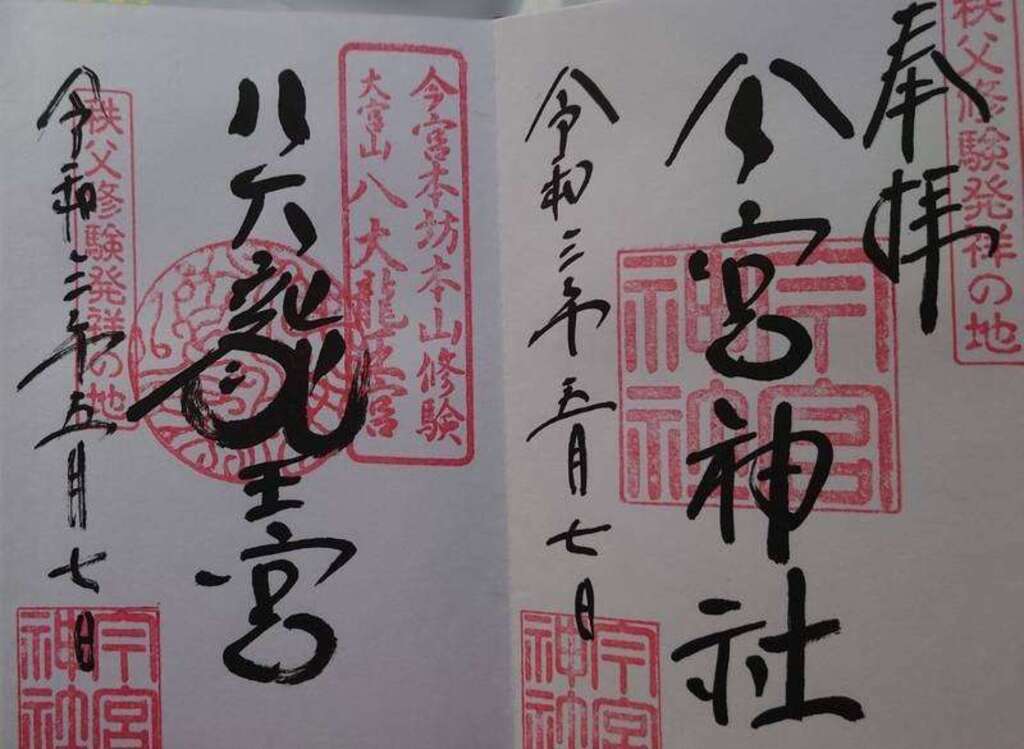 秩父修験発祥の地
奉拝
今宮神社
今宮
神社
令和三年五月七日
今宮
神社
今宮本坊本山修験
大宮山八大龍王宮
八大龍王宮
秩父修験発祥の地
令和三年五月七日
今宮
神社